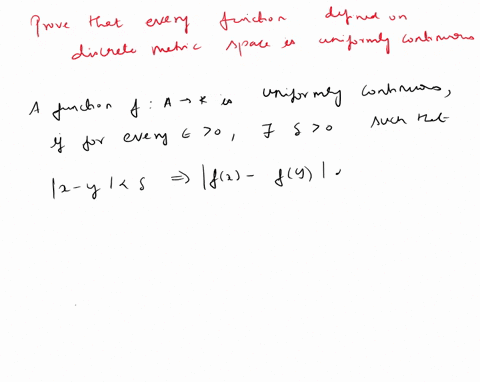 Prove that every function defined on
discrete metric space is uniformly continuous
A function f : A → R is uniformly continuous,
if for every ε > 0, ∃ δ > 0 such that
|x - y| < δ ⇒ |f(x) - f(y)|